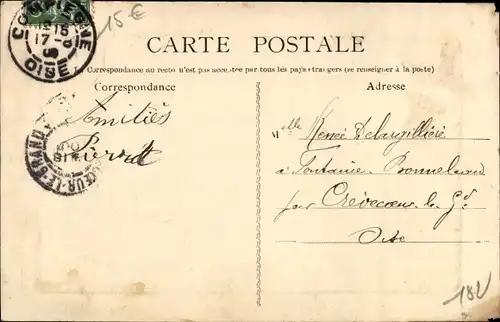 COMPIEGNE
17-8
OISE
15 €
CARTE POSTALE
La Correspondance au recto n'est pas acceptée par tous les pays étrangers (se renseigner à la poste)
Correspondance
Adresse
Amitiés
Pierrot
CŒUR-LE-GRAND
Melle Renée Delargillière
à Fontaine Bonneleau
par Crèvecœur le Gd
Oise
182